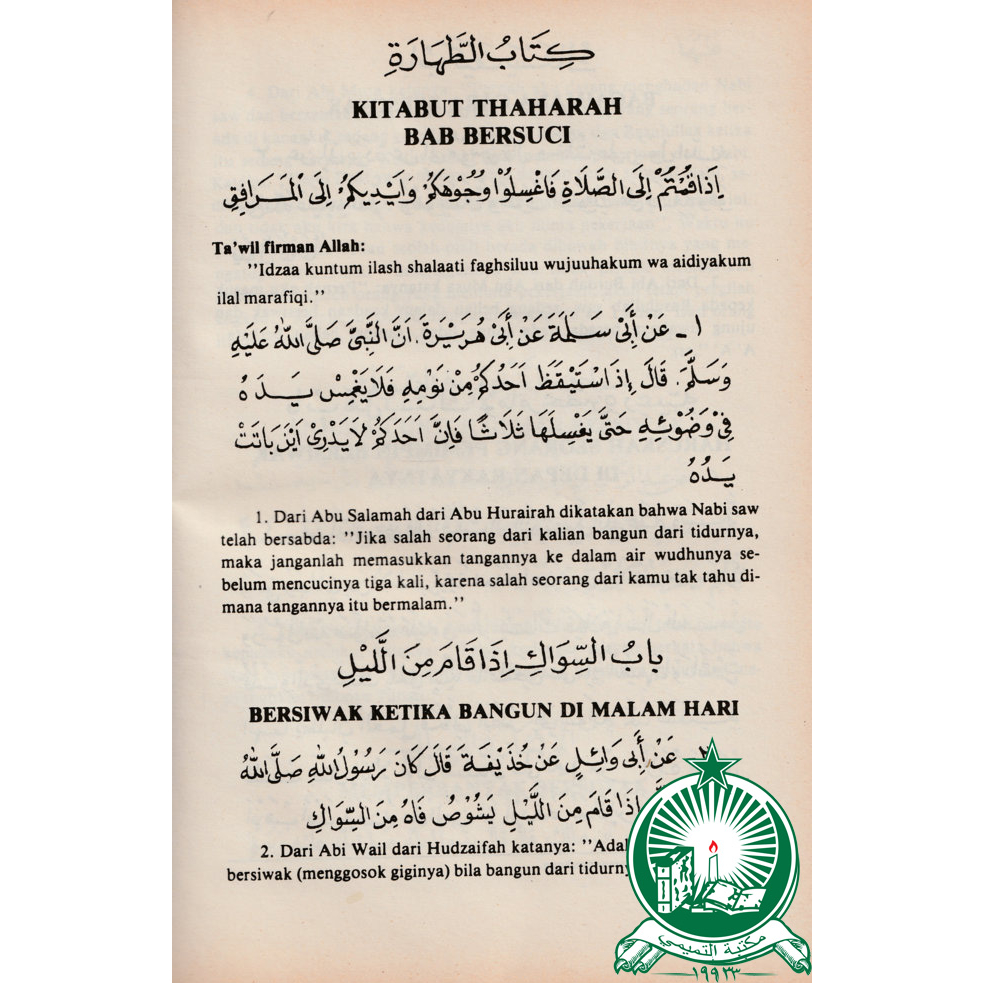 كِتَابُ الطَّهَارَةِ
KITABUT THAHARAH
BAB BERSUCI
اِذَا قُمْتُمْ اِلَى الصَّلَاةِ فَاغْسِلُوْا وُجُوْهَكُمْ وَاَيْدِيكُمْ اِلَى الْمَرَافِقِ
Ta'wil firman Allah:
''Idzaa kuntum ilash shalaati faghsiluu wujuuhakum wa aidiyakum
ilal marafiqi.''
١ - عَنْ أَبِيْ سَلَمَةَ عَنْ أَبِيْ هُرَيْرَةَ. اَنَّ النَّبِيَّ صَلَّى اللهُ عَلَيْهِ
وَسَلَّمَ. قَالَ إِذَ اسْتَيْقَظَ اَحَدُكُمْ مِنْ نَوْمِهِ فَلَا يَغْمِسْ يَدَهُ
فِيْ وَضُوْئِهِ حَتَّى يَغْسِلَهَا ثَلَاثًا فَإِنَّ اَحَدَكُمْ لَايَدْرِيْ اَيْنَ بَاتَتْ
يَدُهُ
1. Dari Abu Salamah dari Abu Hurairah dikatakan bahwa Nabi saw
telah bersabda: ''Jika salah seorang dari kalian bangun dari tidurnya,
maka janganlah memasukkan tangannya ke dalam air wudhunya se-
belum mencucinya tiga kali, karena salah seorang dari kamu tak tahu di-
mana tangannya itu bermalam.''
بابُ السِّوَاكِ اِذَا قَامَ مِنَ الَّليْلِ
BERSIWAK KETIKA BANGUN DI MALAM HARI
عَنْ أَبِى وَائِلٍ عَنْ حُذَيْفَةَ قَالَ كَانَ رَسُوْلُ اللهِ صَلَّى اللهُ
إِذَا قَامَ مِنَ اللَّيْلِ يَشُوْصُ فَاهُ مِنَ السِّوَاكِ
2. Dari Abi Wail dari Hudzaifah katanya: ''Adal
bersiwak (menggosok giginya) bila bangun dari tidurny
مكتبة التميمي
١٩٩٣٣